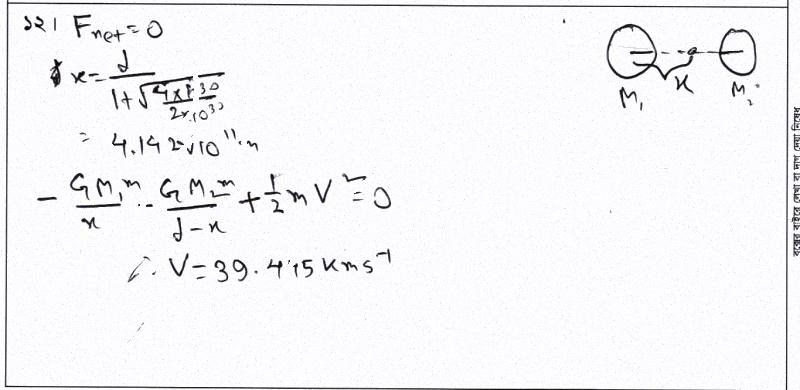 ১২। F_net = 0
x = d / (1+√(4×10^30 / 2×10^30))
= 4.142×10^11 m
- GM₁m/x - GM₂m/(d-x) + ½mV² = 0
∴ V = 39.415 kms⁻¹
M₁ x M₂
বক্সের বাইরে লেখা বা দাগ দেয়া নিষেধ